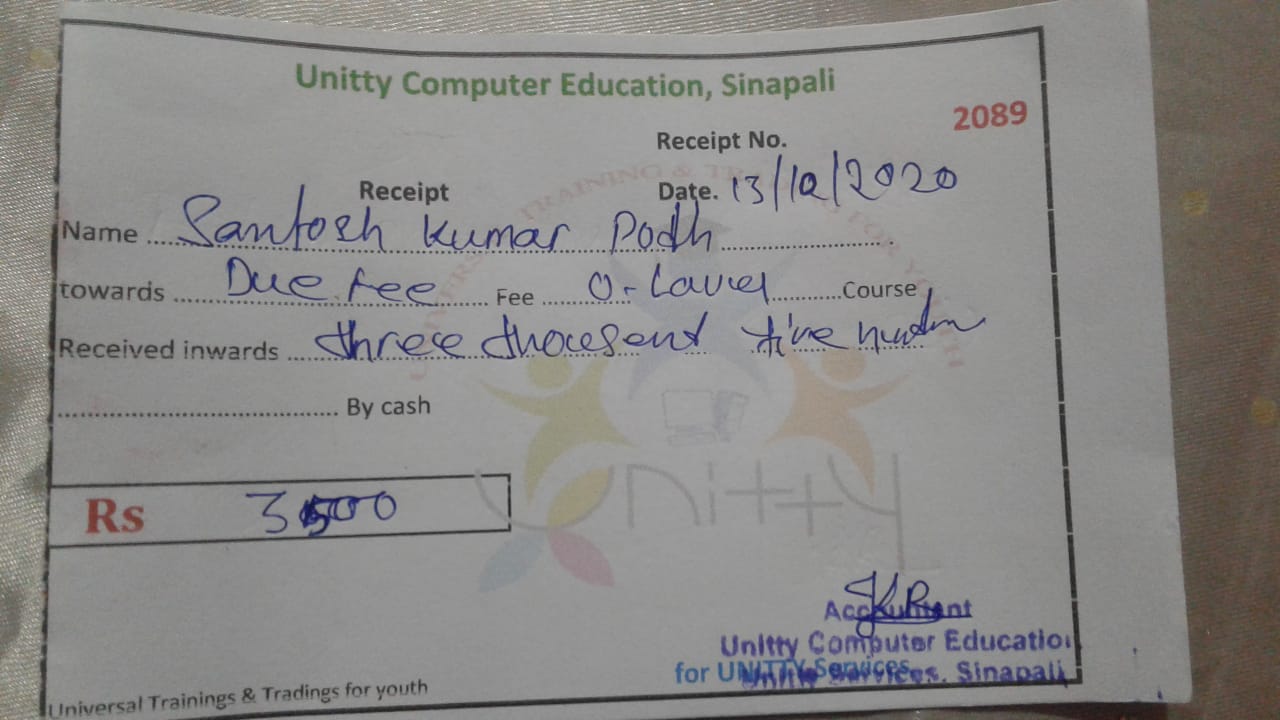 Unitty Computer Education, Sinapali
2089
Receipt No.
Receipt Date. 13/12/2020
Name Santosh Kumar Podh
towards Due fee Fee O-Lavel Course
Received inwards three thousent five
By cash
Rs 3500
Accountant
Unitty Computer Educatio
for UNITTY Services
Services, Sinapali
Universal Trainings & Tradings for youth
Unitty